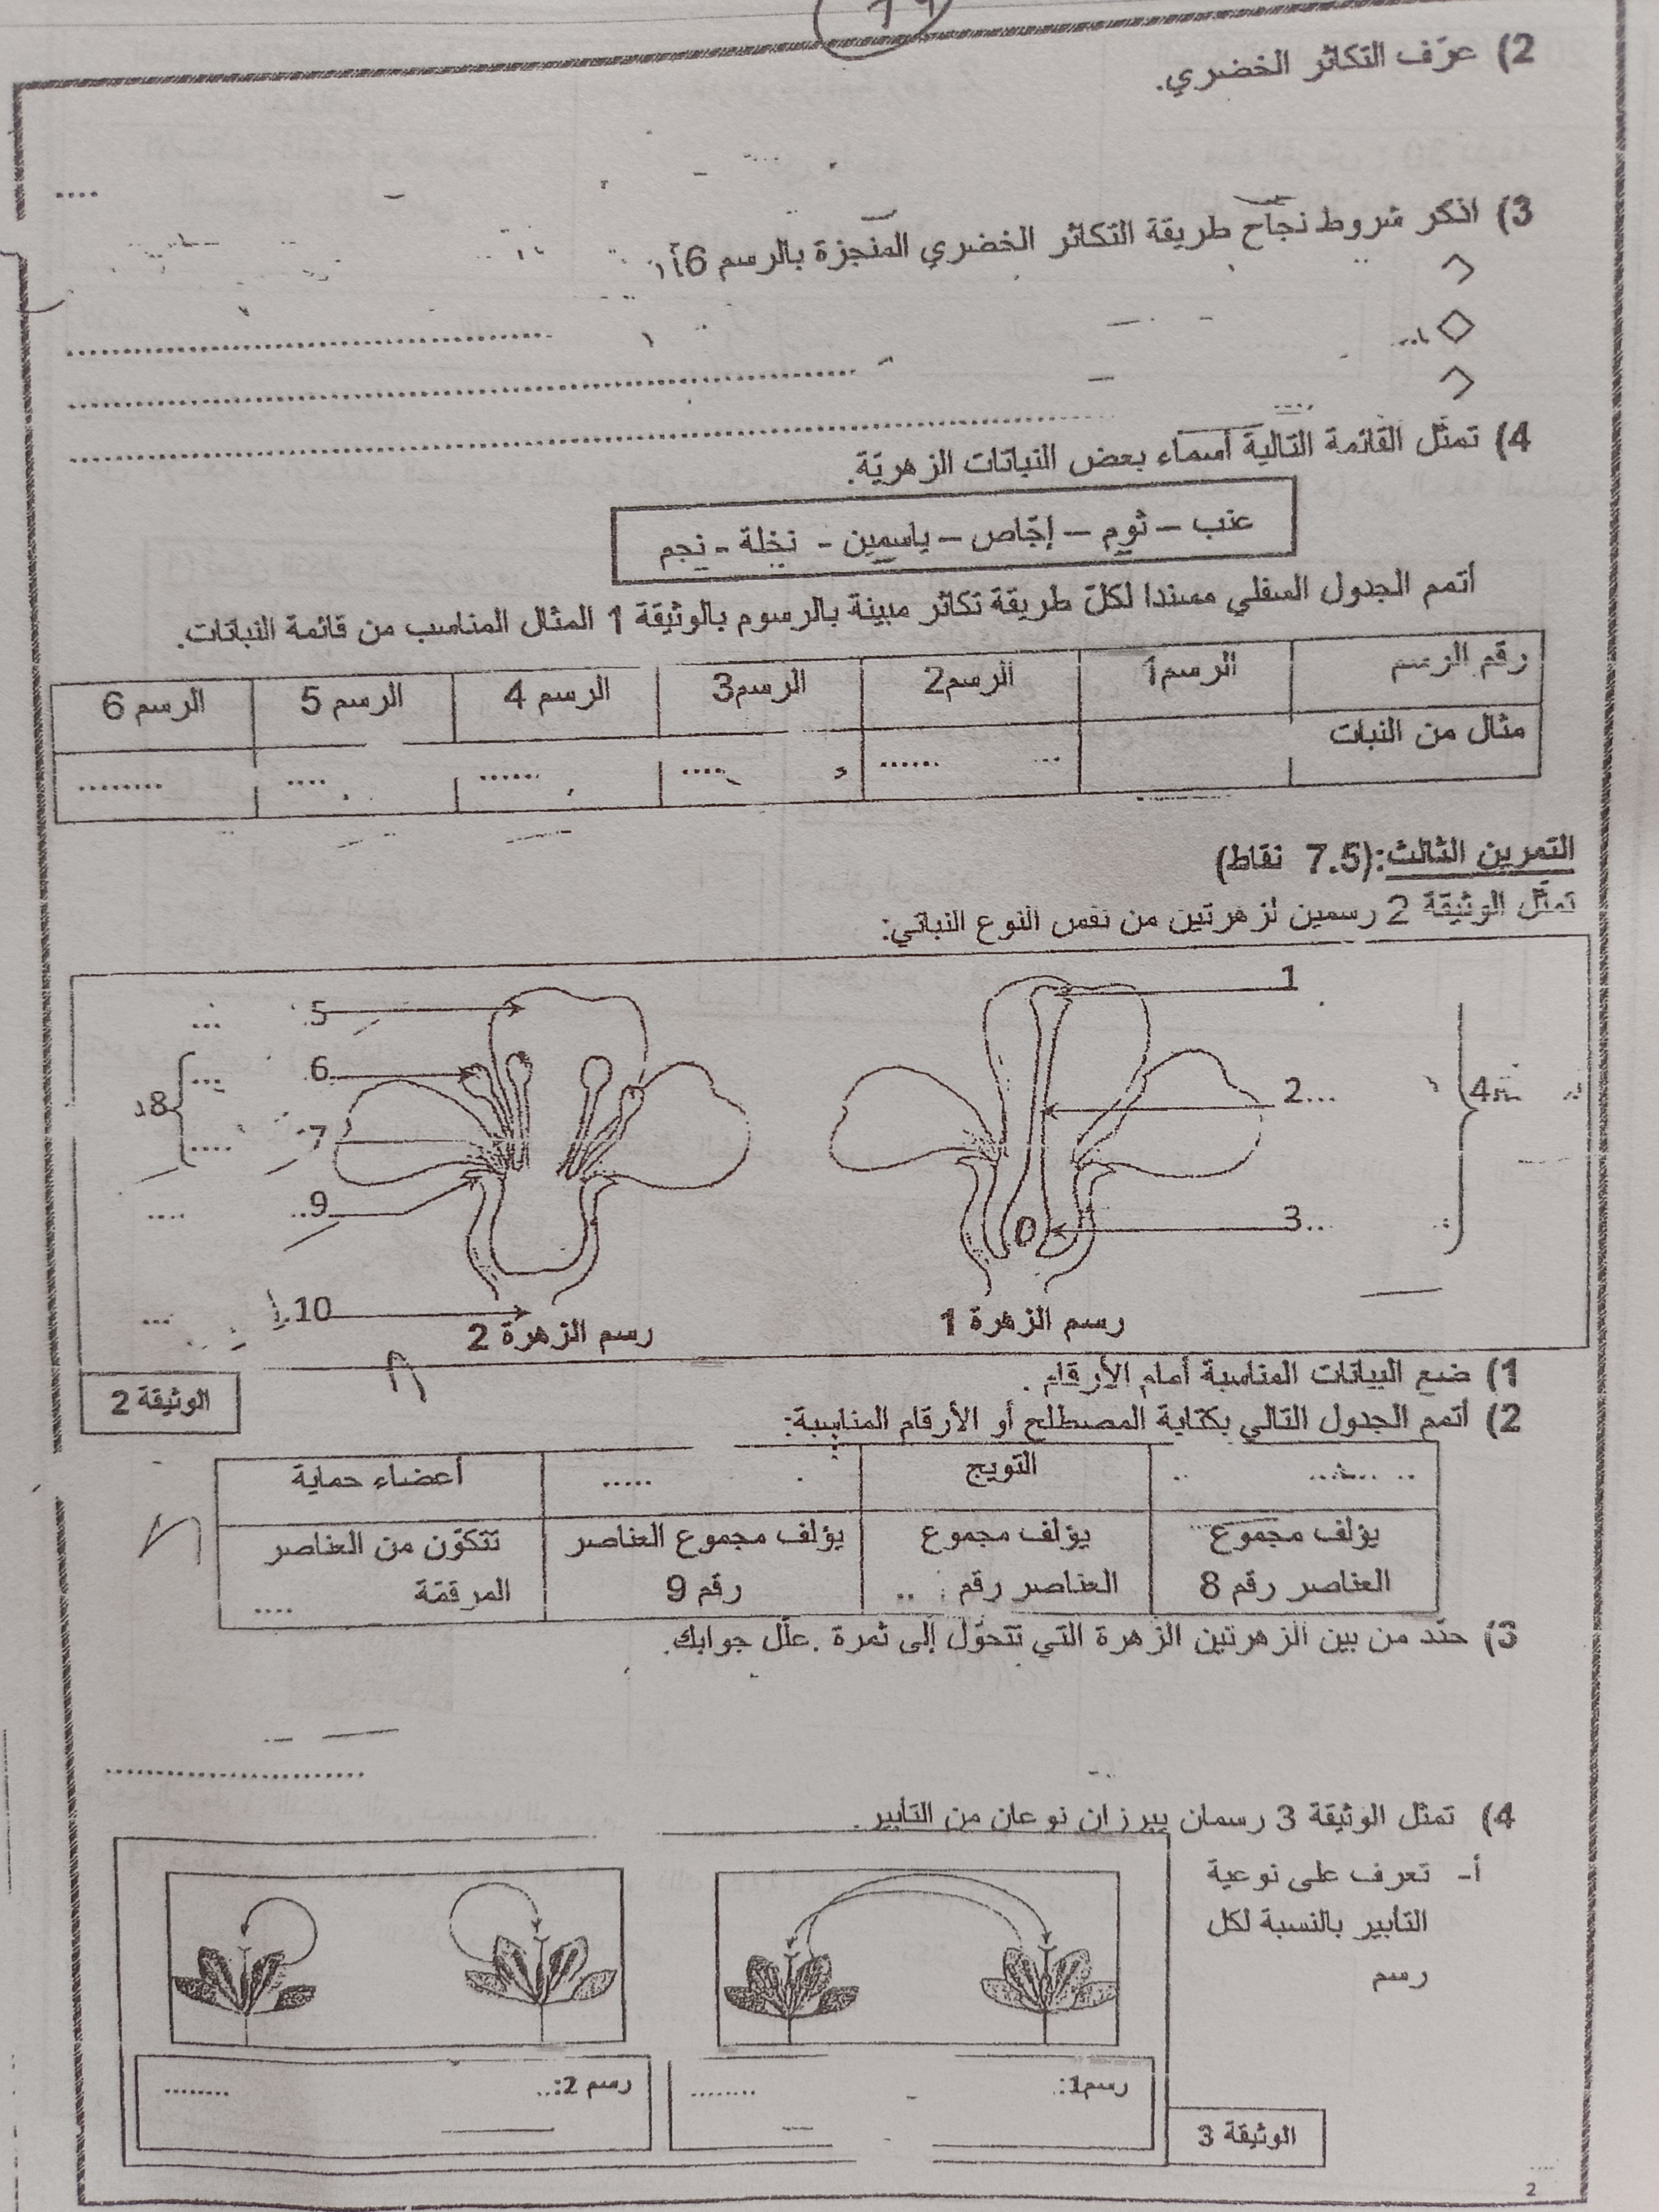 2) عرّف التكاثر الخضري.
3) اذكر شروط نجاح طريقة التكاثر الخضري المنجزة بالرسم 6أ
4) تمثّل القائمة التالية أسماء بعض النباتات الزهريّة.
عنب – ثوم – إجّاص – ياسمين - نخلة - نجم
أتمم الجدول السفلي مسندا لكلّ طريقة تكاثر مبينة بالرسوم بالوثيقة 1 المثال المناسب من قائمة النباتات.
رقم الرسم الرسم1 الرسم2 الرسم3 الرسم 4 الرسم 5 الرسم 6
مثال من النبات
التمرين الثالث:(7.5 نقاط)
تمثّل الوثيقة 2 رسمين لزهرتين من نفس النوع النباتي:
1
2...
3...
4
رسم الزهرة 1
5
6
7
8
9
10
رسم الزهرة 2
الوثيقة 2
1) ضع البيانات المناسبة أمام الأرقام.
2) أتمم الجدول التالي بكتابة المصطلح أو الأرقام المناسبة:
التويج ..... أعضاء حماية
يؤلف مجموع يؤلف مجموع يؤلف مجموع العناصر تتكوّن من العناصر
العناصر رقم 8 العناصر رقم .. رقم 9 المرقمّة ....
3) حدّد من بين الزهرتين الزهرة التي تتحوّل إلى ثمرة .علّل جوابك.
4) تمثل الوثيقة 3 رسمان يبرزان نوعان من التأبير.
أ- تعرف على نوعية
التأبير بالنسبة لكل
رسم
رسم1: ........
رسم 2:.. ........
الوثيقة 3
2